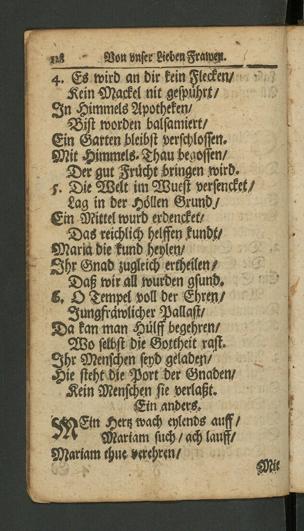 118 Von unser Lieben Frawen.
4. Es wird an dir kein Flecken/
Kein Mackel nit gespührt/
In Himmels Apotheken/
Bist worden balsamiert/
Ein Garten bleibst verschlossen.
Mit Himmels-Thau begossen/
Der gut Frücht bringen wird.
5. Die Welt im Wuest versencket/
Lag in der Höllen Grund/
Ein Mittel wurd erdencket/
Das reichlich helffen kundt/
Maria die kund heylen/
Ihr Gnad zugleich ertheilen/
Daß wir all wurden gsund.
6. O Tempel voll der Ehren/
Jungfräwlicher Pallast/
Da kan man Hülff begehren/
Wo selbst die Gottheit rast.
Ihr Menschen seyd geladen/
Hie steht die Port der Gnaden/
Kein Menschen sie verlaßt.
Ein anders.
MEin Hertz wach eylends auff/
Mariam such/ ach lauff/
Mariam thue verehren/
Mit